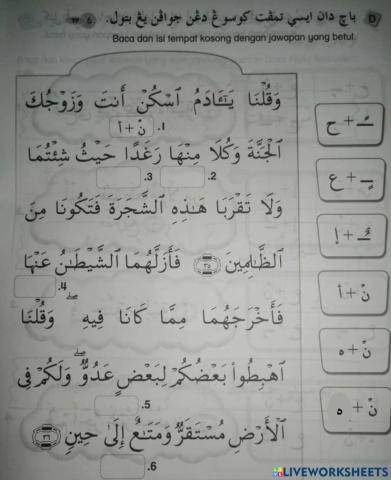 D باچ دان ايسي تمڤت كوسوڠ دڠن جواڤن يڠ بتول.
Baca dan isi tempat kosong dengan jawapan yang betul.
وَقُلْنَا يَـٰٓـَٔادَمُ ٱسْكُنْ أَنتَ وَزَوْجُكَ
1. نْ + أ
ٱلْجَنَّةَ وَكُلَا مِنْهَا رَغَدًا حَيْثُ شِئْتُمَا
2. 3.
وَلَا تَقْرَبَا هَـٰذِهِ ٱلشَّجَرَةَ فَتَكُونَا مِنَ
ٱلظَّـٰلِمِينَ ٣٥ فَأَزَلَّهُمَا ٱلشَّيْطَـٰنُ عَنْهَا
4.
فَأَخْرَجَهُمَا مِمَّا كَانَا فِيهِ ۖ وَقُلْنَا
ٱهْبِطُوا۟ بَعْضُكُمْ لِبَعْضٍ عَدُوٌّ ۖ وَلَكُمْ فِى
5.
ٱلْأَرْضِ مُسْتَقَرٌّ وَمَتَـٰعٌ إِلَىٰ حِينٍ ٣٦
6.
ـًـ + ح
ـٍـ + ع
ـٌـ + إ
نْ + أ
نْ + ه
نْ + ه
LIVEWORKSHEETS